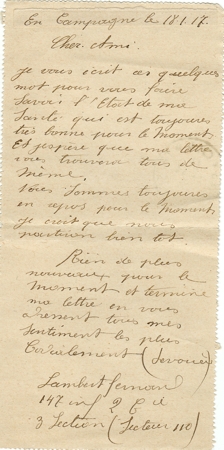 En Campagne le 18.1.17.
Cher Ami.
je vous écrit ces quelques
mot pour vous faire
Savoir l'Etat de ma
Santé qui est toujours
très bonne pour le moment
Et j'espère que ma lettre
vous trouvera tous de
Même.
Nous Sommes toujours
en repos pour le Moment
je crois que nous
partiron bien tot.
Rien de plus
nouveaux pour le
Moment et termine
ma lettre en vous
adressent tous mes
sentiment les plus
Cordialement
Lambert Fernand
147 inf 2 Cie
3 Section (Secteur 110)